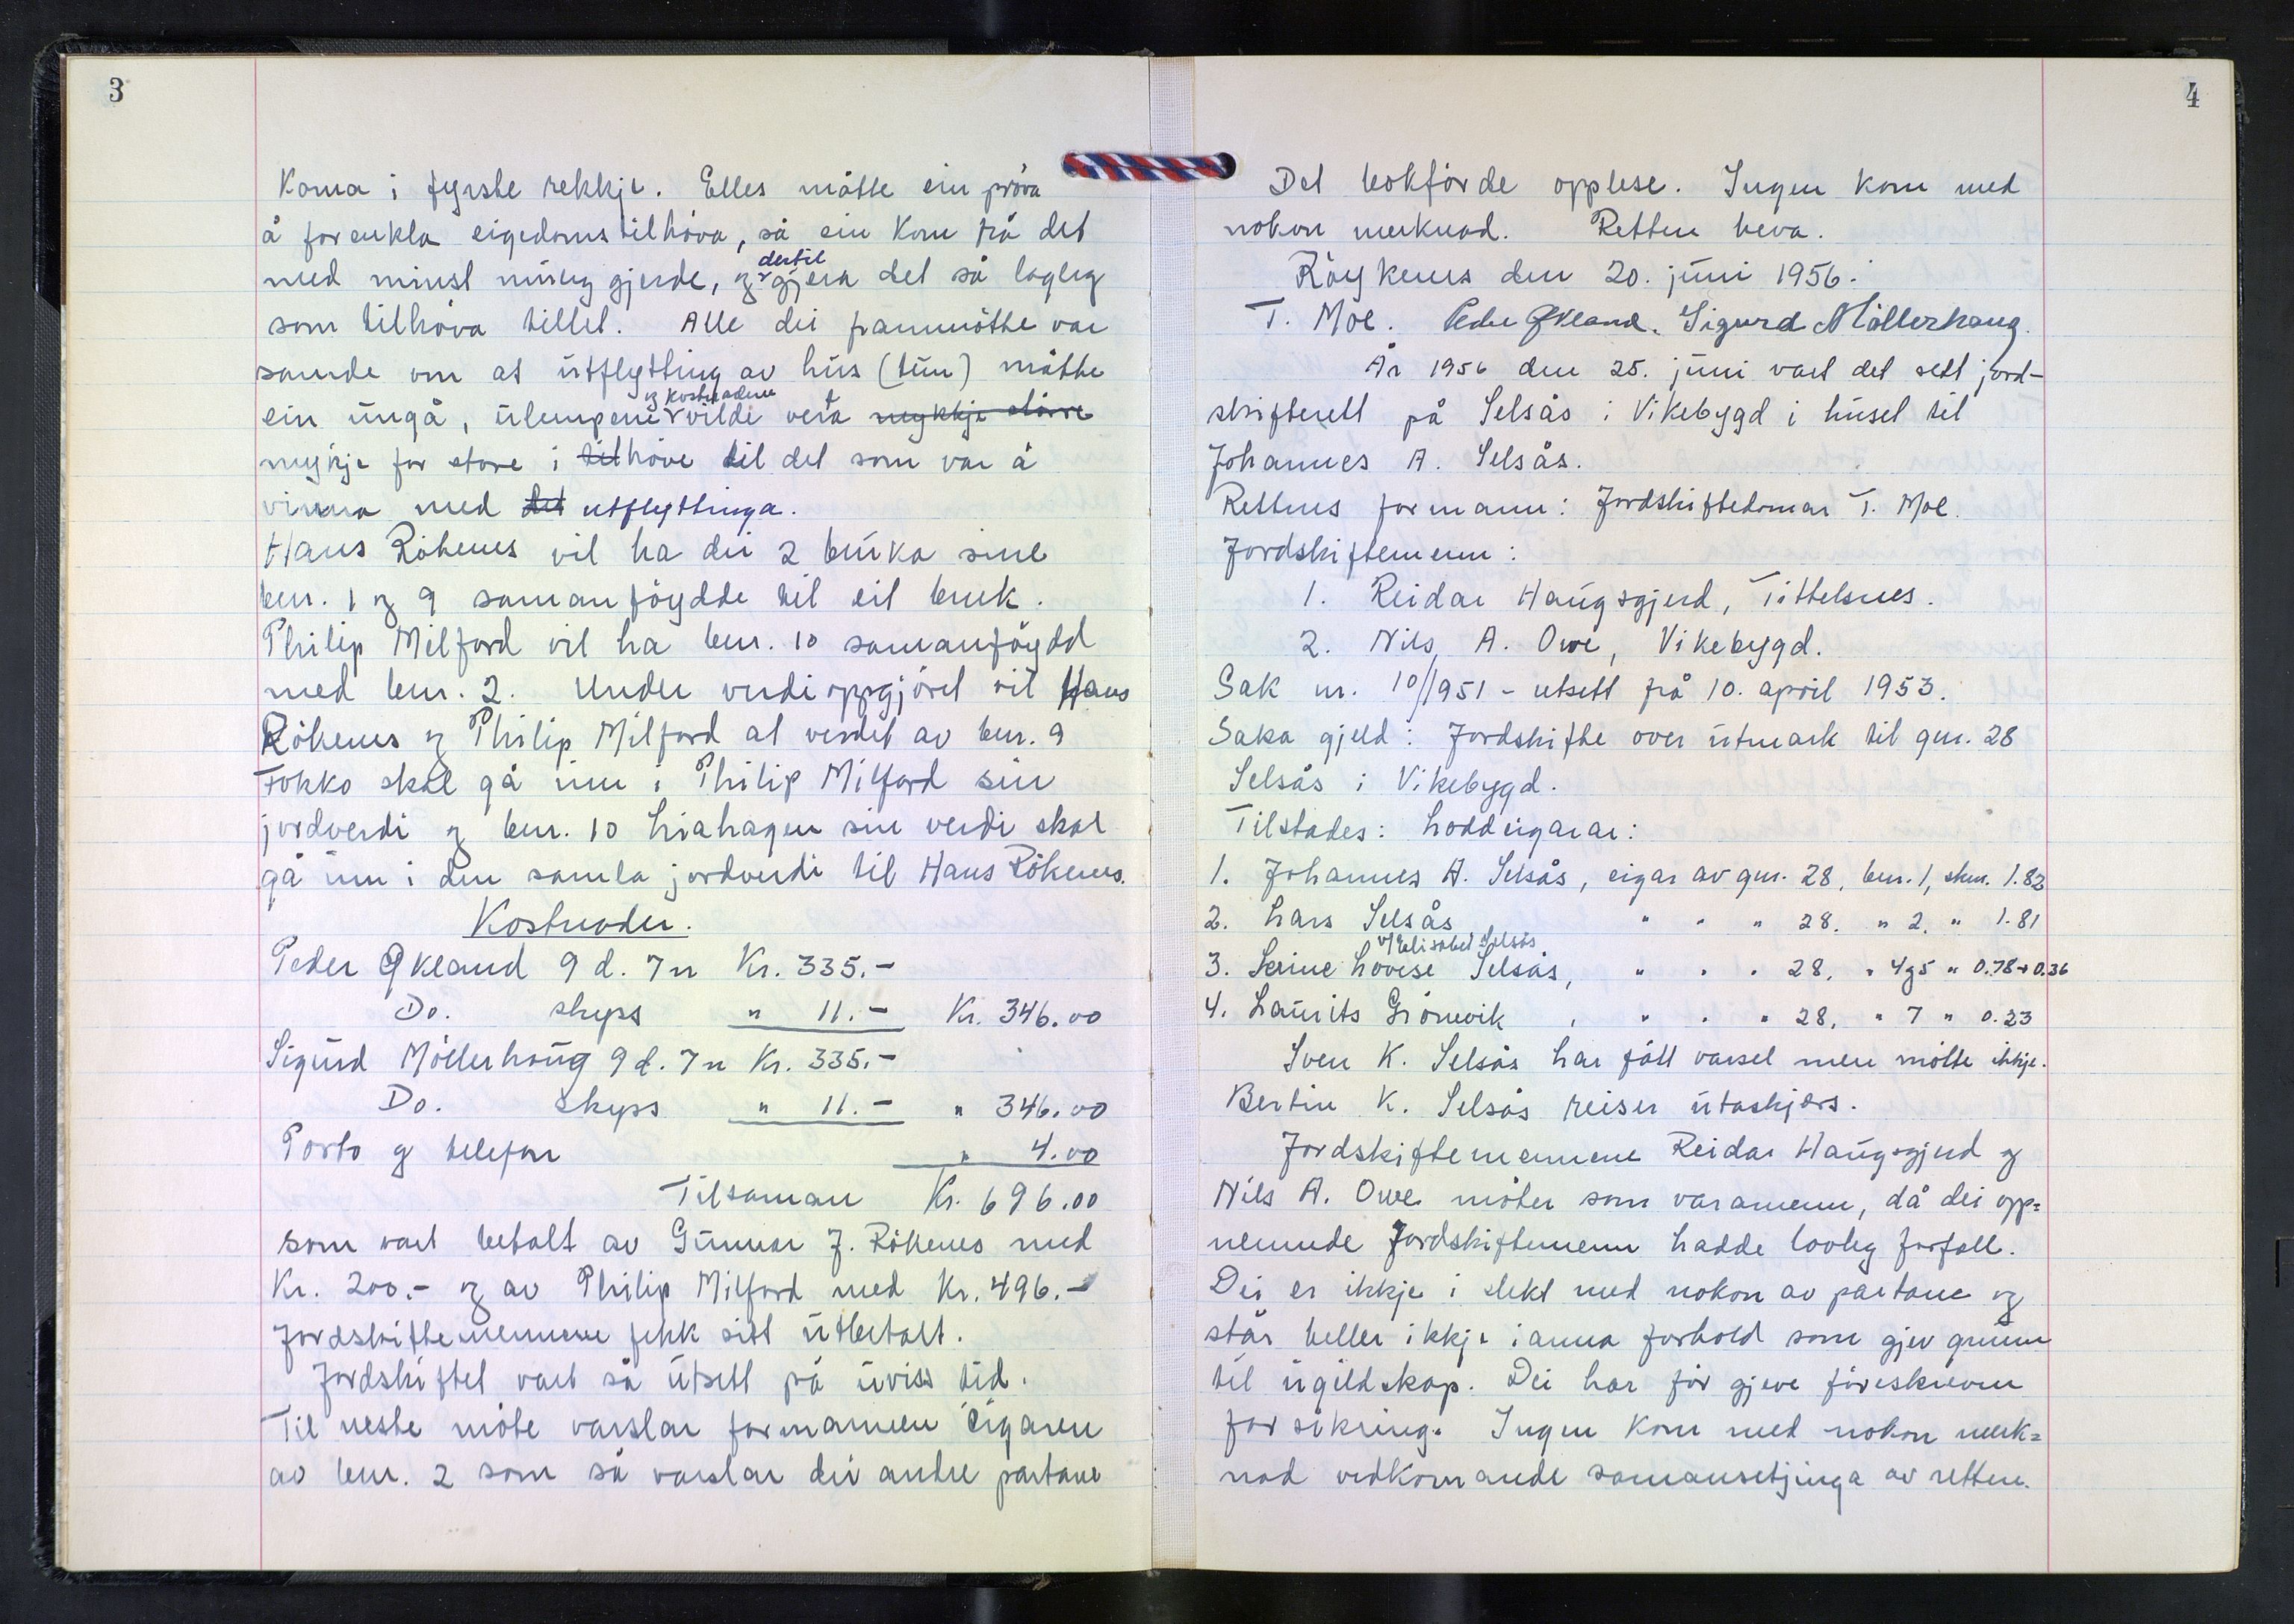 3
Koma i fyrste rekkje. Elles måtte ein pröva
å forenkla eigedomstilhöva, så ein kom frå det
med minst muleg gjerde, og dertil gjera det så lagleg
som tilhöva tillet. Alle dei frammötte var
samde om at utflytting av hus (tun) måtte
ein ungå, ulempene og kostnadene vilde verta mykkje större
mykje for store i tilhöve til det som var å
vinna med det utflyttinga.
Hans Rökenes vil ha dei 2 bruka sine
bnr. 1 og 9 samanföydde til eit bruk.
Philip Milford vil ha bnr. 10 samanföydd
med bnr. 2. Under verdioppgjöret vil Hans
Rökenes og Philip Milford at verdet av bnr. 9
Fokko skal gå inn i Philip Milford sin
jordverdi og bnr. 10 Liahagen sin verdi skal
gå inn i den samla jordverdi til Hans Rökenes.
Kostnader.
Peder Økland 9 d. 7 n Kr. 335.-
Do. skyss " 11.- Kr. 346.00
Sigurd Möllerhaug 9 d. 7 n Kr. 335.-
Do. skyss " 11.- " 346.00
Porto og telefon " 4.00
Tilsaman Kr. 696.00
som vart betalt av Gunnar J. Rökenes med
Kr. 200.- og av Philip Milford med Kr. 496.-
Jordskiftemennene fekk sitt utbetalt.
Jordskiftet vart så utsett på uviss tid.
Til neste möte varslar formannen eigaren
av bnr. 2 som så varslar dei andre partane
4
Det bokförde opplese. Ingen kom med
nokon merknad. Retten heva.
Röykenes den 20. juni 1956.
T. Moe. Peder Økland. Sigurd Möllerhaug.
År 1956 den 25. juni vart det sett jord-
skifterett på Selsås i Vikebygd i huset til
Johannes A. Selsås.
Rettens formann: Jordskiftedomar T. Moe.
Jordskiftemenn:
1. Reidar Haugsgjerd, Tittelsnes.
2. Nils A. Owe, Vikebygd.
Sak nr. 10/1951 - utsett frå 10. april 1953.
Saka gjeld: Jordskifte over utmark til gnr. 28
Selsås i Vikebygd.
Tilstades: Loddeigarar:
1. Johannes A. Selsås, eigar av gnr. 28, bnr. 1, skm. 1.82
2. Lars Selsås " " " 28. " 2. " 1.81
3. Serine Lovise v/Elisabet Selsås Selsås, " " " 28, " 4 og 5 " 0.78+0.36
4. Laurits Grönevik , " " " 28, " 7 " 0.23
Sven K. Selsås har fått varsel men mötte ikkje.
Bertin K. Selsås reiser utaskjærs.
Jordskiftemennene Reidar Haugsgjerd og
Nils A. Owe möter som varamenn, då dei opp=
nemnde Jordskiftemenn hadde lovleg forfall.
Dei er ikkje i slekt med nokon av partane og
står heller ikkje i anna forhold som gjev grunn
til ugildskap. Dei har för gjeve föreskreven
forsikring. Ingen kom med nokon merk=
nad vedkomande samansetjinga av retten.